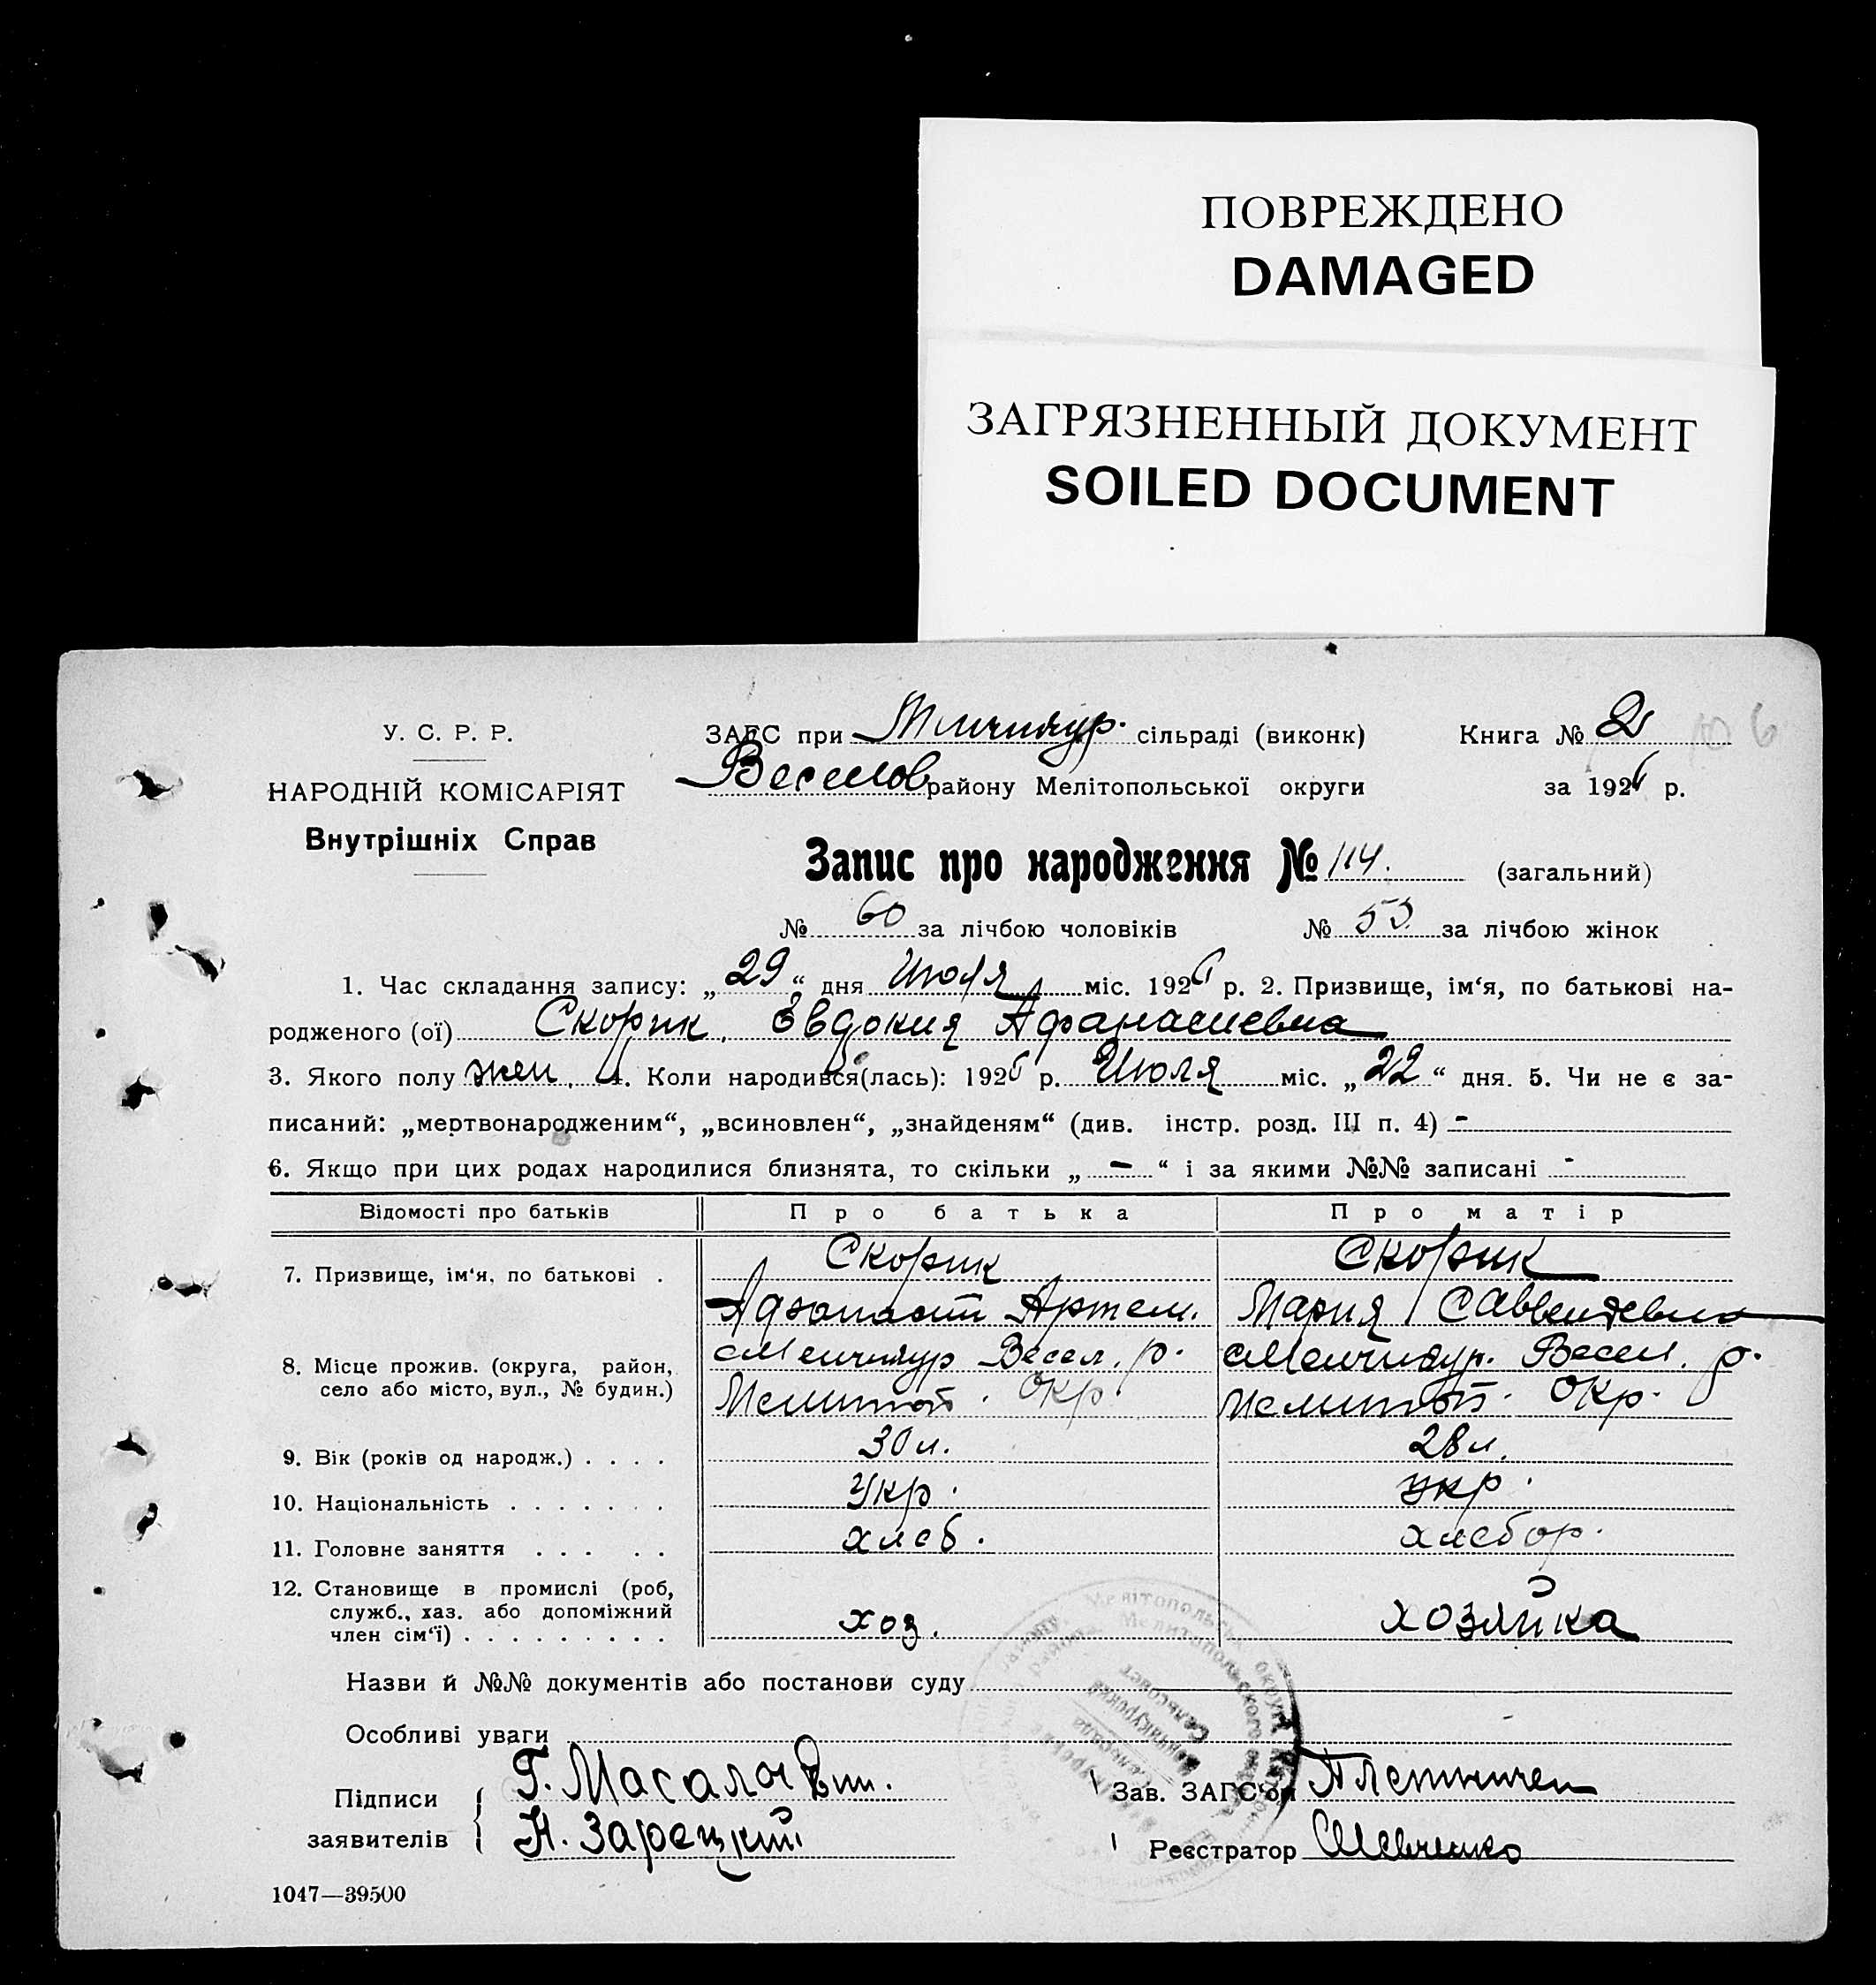 ПОВРЕЖДЕНО
DAMAGED
ЗАГРЯЗНЕННЫЙ ДОКУМЕНТ
SOILED DOCUMENT
У. С. Р. Р.
НАРОДНІЙ КОМІСАРІЯТ
Внутрішніх Справ
ЗАГС при сільраді (виконк)
Книга № 2
6
Веселов району Мелітопольської округи
за 1926 р.
Запис про народження № 114. (загальний)
№ 60 за лічбою чоловіків № 53 за лічбою жінок
1. Час складання запису: „29“ дня Июля міс. 1926 р. 2. Призвище, ім‘я, по батькові на-
родженого (ої) Скорик Евдокия Афанасиевна
3. Якого полу жен. 4. Коли народився(лась): 1926 р. Июля міс. „22“ дня. 5. Чи не є за-
писаний: „мертвонародженим“, „всиновлен“, „знайденям“ (див. інстр. розд. III п. 4) -
6. Якщо при цих родах народилися близнята, то скільки „ — “ і за якими №№ записані -
Відомості про батьків Про батька Про матір
7. Призвище, ім‘я, по батькові . Скорик Скорик
Артем. Мария
8. Місце прожив. (округа, район, Весел. р. Весел. р.
село або місто, вул., № будин.) Мелитоп. Окр Мелитоп. Окр.
9. Вік (років од народж.) . . . . 30 л. 28 л.
10. Національність . . . . . . . Укр. укр.
11. Головне заняття . . . . . хлеб. хлебор.
12. Становище в промислі (роб,
служб., хаз. або допоміжний
член сім‘ї) . . . . . . . . . хоз. хозяйка
Назви й №№ документів або постанови суду
Особливі уваги
Підписи Г. Зав. ЗАГС‘ом
заявителів Н. Зарецкий Реєстратор Шевченко
1047—39500